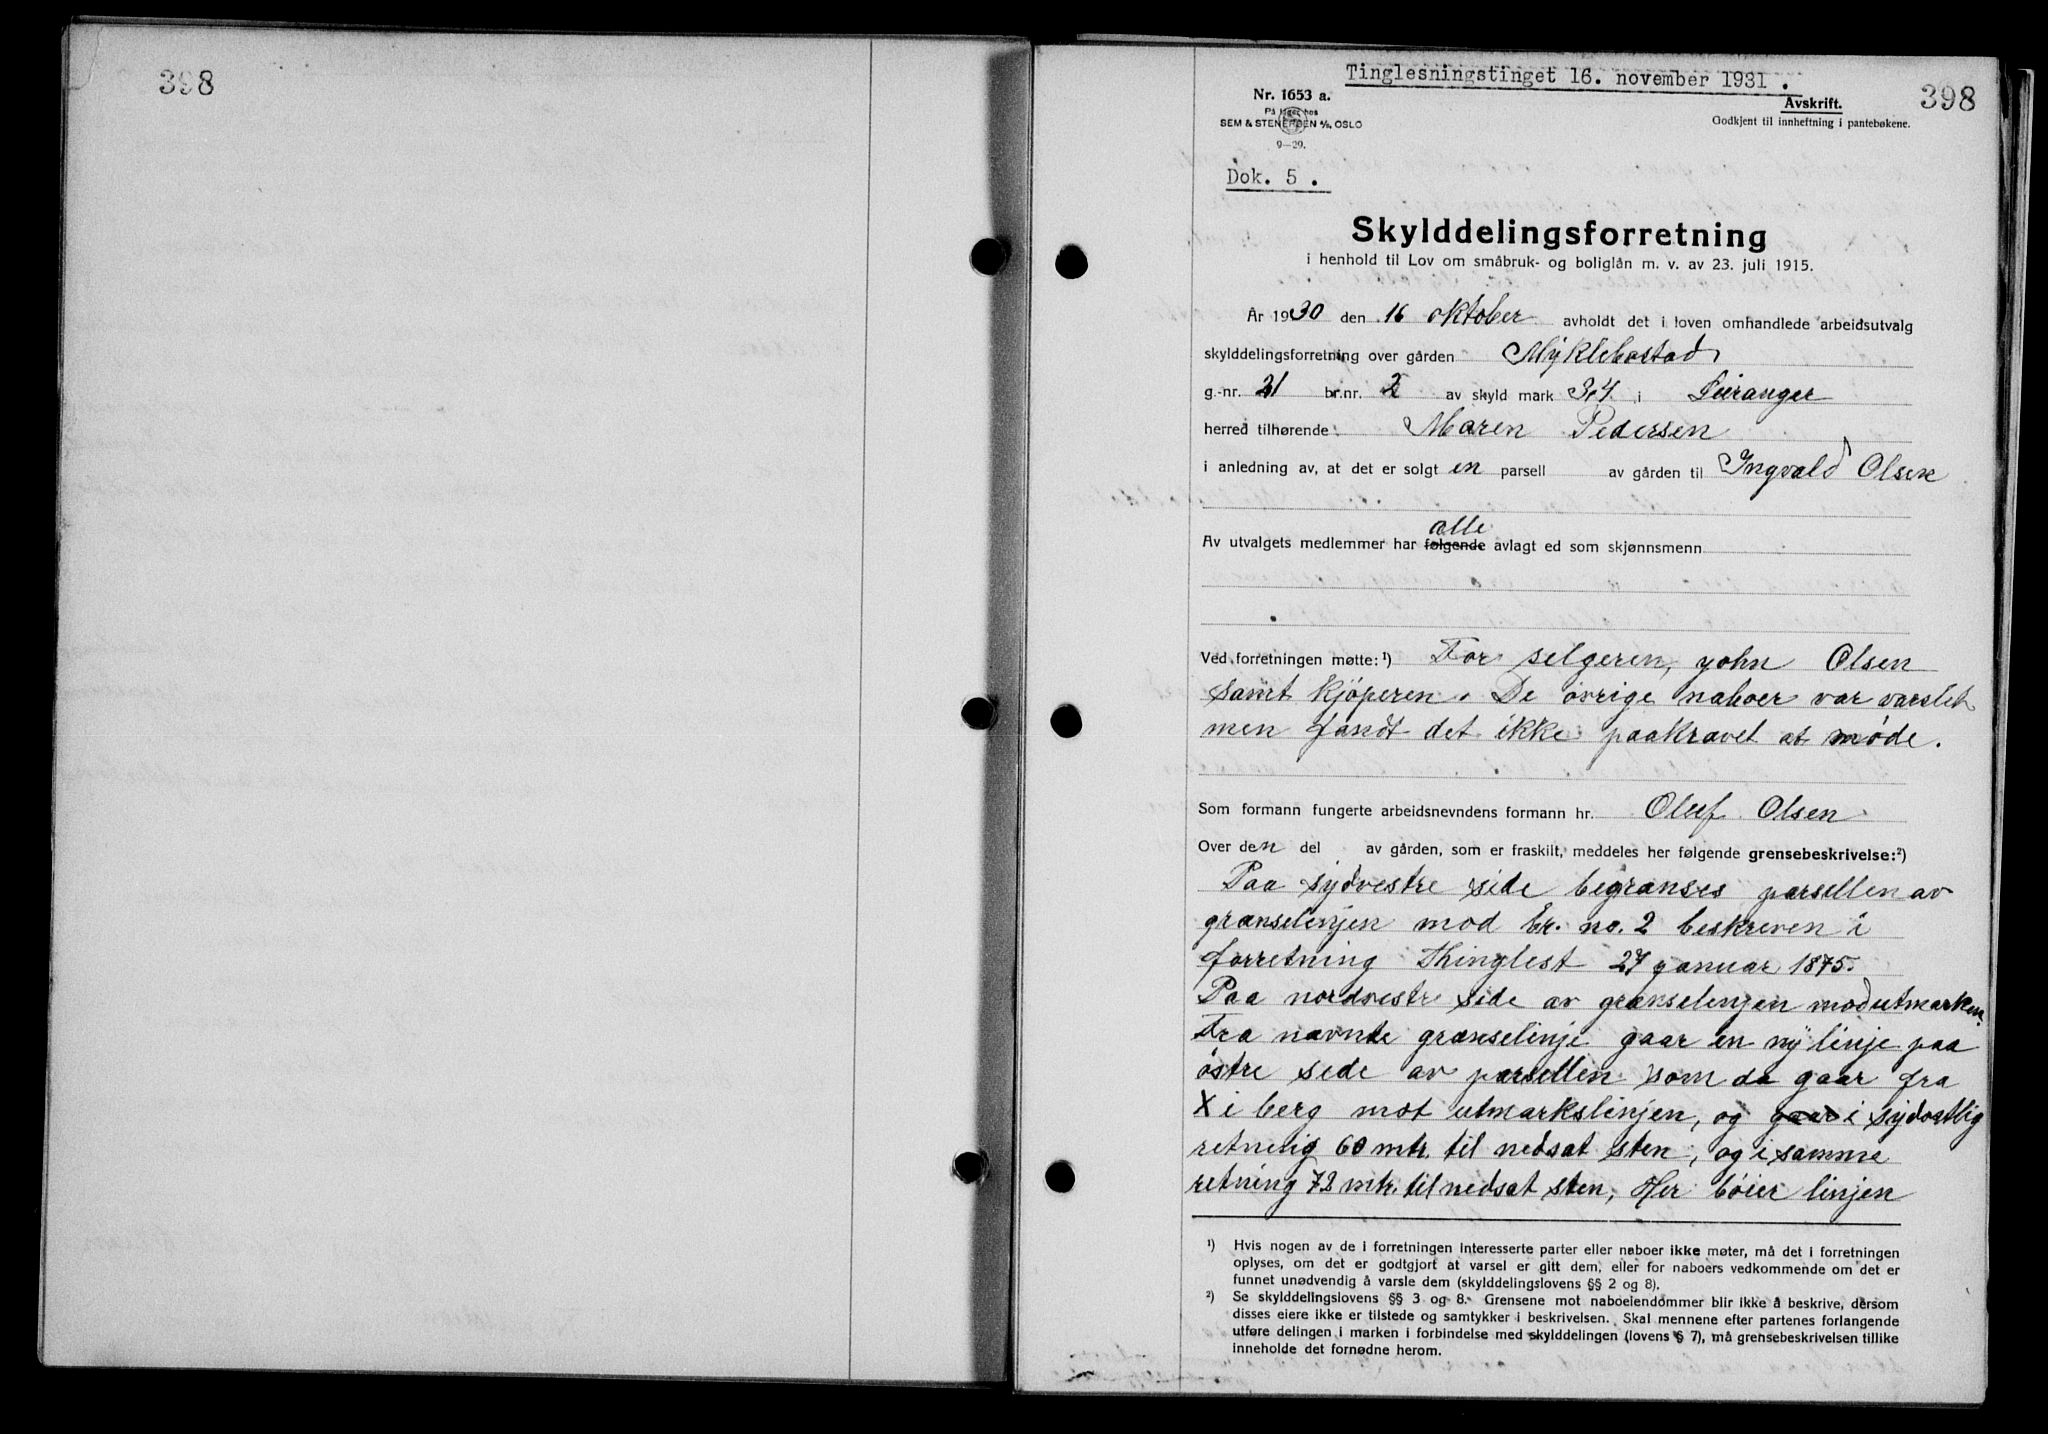 398
Tinglesningstinget 16. november 1931.
Nr. 1653 a.
På lager hos
SEM & STENERSEN A/S, OSLO
9—29.
Avskrift.
Godkjent til innheftning i pantebøkene.
398
Dok. 5.
Skylddelingsforretning
i henhold til Lov om småbruk- og boliglån m. v. av 23. juli 1915.
År 1930 den 16 oktober avholdt det i loven omhandlede arbeidsutvalg
skylddelingsforretning over gården Myklebostad
g.-nr. 21 br.nr. 2 av skyld mark 3,4 i Leiranger
herred tilhørende Maren Pedersen
i anledning av, at det er solgt en parsell av gården til Ingvald Olsen
alle
Av utvalgets medlemmer har følgende avlagt ed som skjønnsmenn
Ved forretningen møtte:¹) For selgeren, john Olsen
samt kjøperen. De øvrige naboer var varslet
men fandt det ikke paakrævet at møde.
Som formann fungerte arbeidsnevndens formann hr. Oluf Olsen
Over den del av gården, som er fraskilt, meddeles her følgende grensebeskrivelse:²)
Paa sydvestre side begrænses parsellen av
grænselinjen mod br. no. 2 beskreven i
forretning Thinglest 27 januar 1875.
Paa nordvestre side av grænselinjen mod utmarken.
Fra nævnte grænselinje gaar en ny linje paa
østre side av parsellen som da gaar fra
X i berg mot utmarkslinjen, og gaar i sydøstlig
retning 60 mtr. til nedsat sten, og i samme
retning 72 mtr. til nedsat sten, Her bøier linjen
¹) Hvis nogen av de i forretningen interesserte parter eller naboer ikke møter, må det i forretningen
oplyses, om det er godtgjort at varsel er gitt dem, eller for naboers vedkommende om det er
funnet unødvendig å varsle dem (skylddelingslovens §§ 2 og 8).
²) Se skylddelingslovens §§ 3 og 8. Grensene mot naboeiendommer blir ikke å beskrive, dersom
disses eiere ikke er tilstede og samtykker i beskrivelsen. Skal mennene efter partenes forlangende
utføre delingen i marken i forbindelse med skylddelingen (lovens § 7), må grensebeskrivelsen tillike
inneholde det fornødne herom.